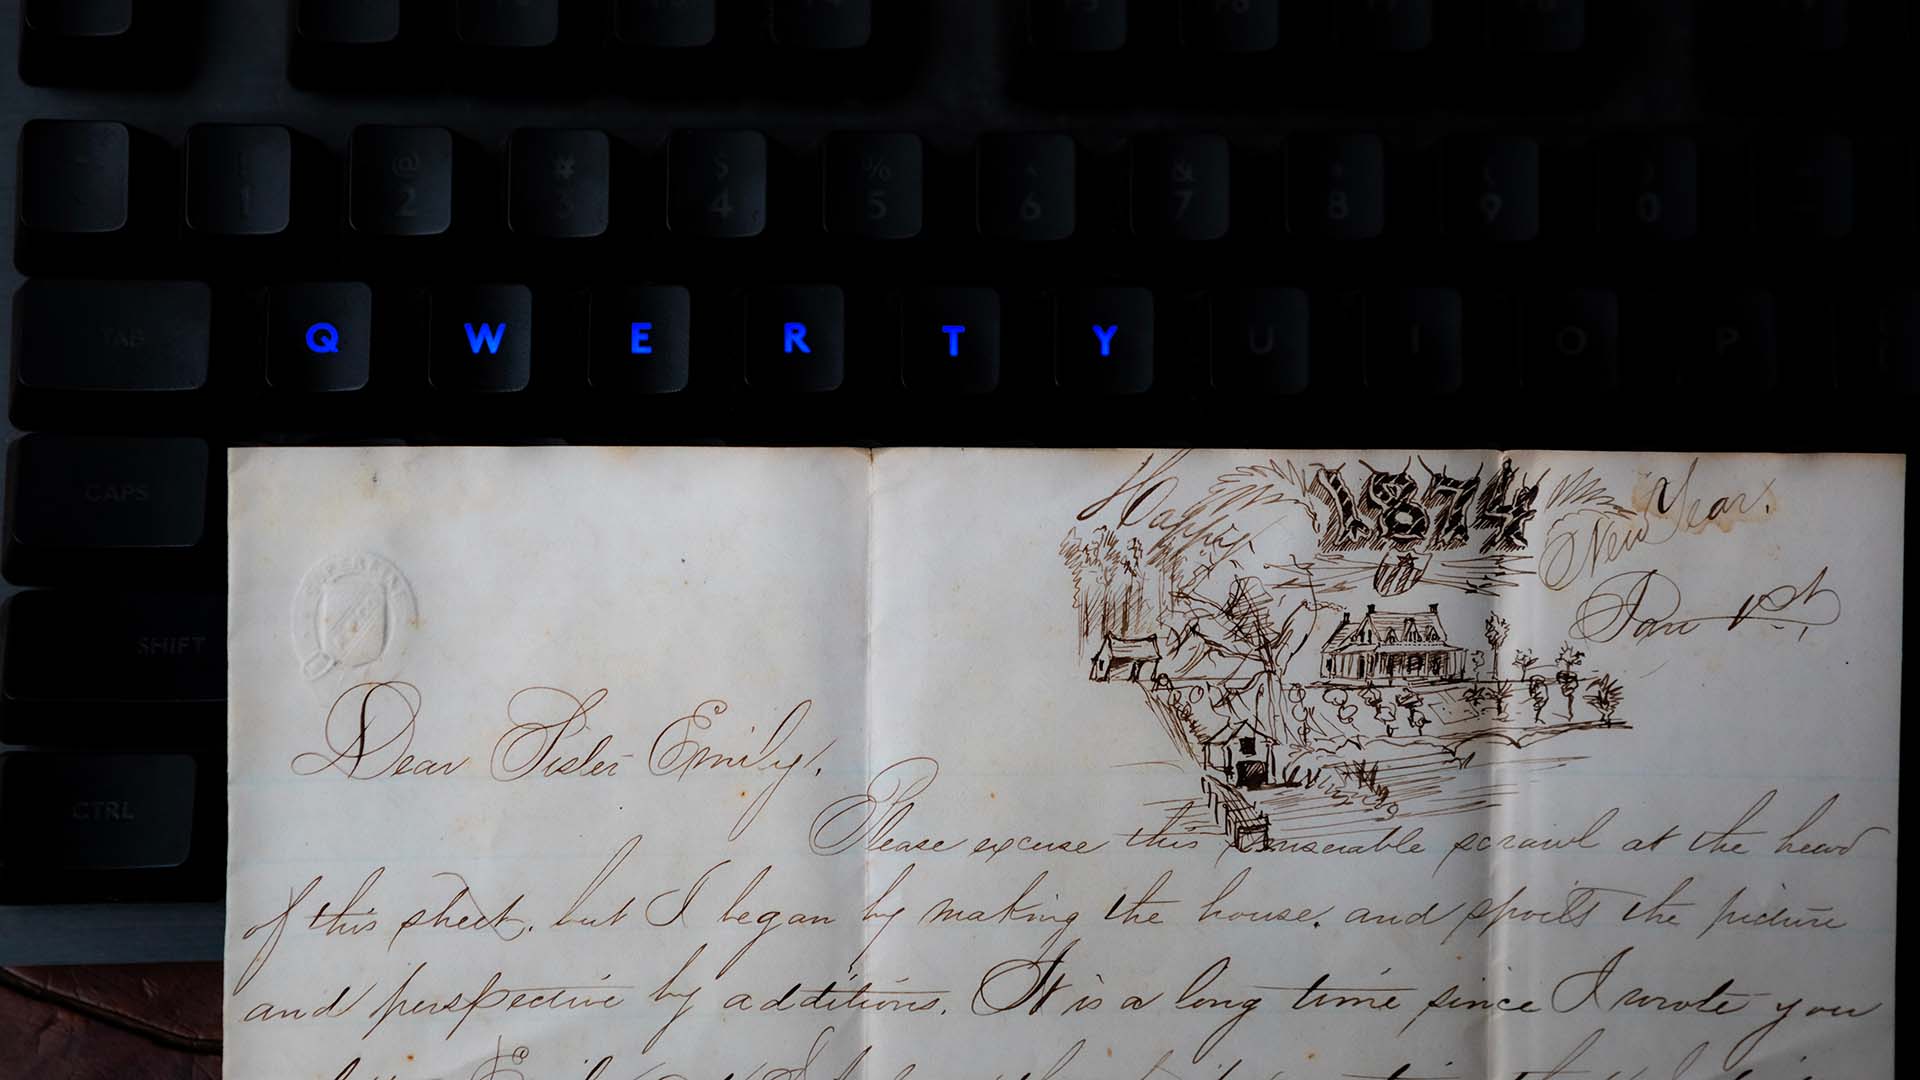 1 @ 2 # 3 $ 4 % 5 ^ 6 & 7 * 8 ( 9 ) 0
TAB Q W E R T Y U I O P
CAPS
SHIFT
CTRL
Happy 1874 New Year.
Jan 1st.
Dear Sister Emily,
Please excuse this miserable scrawl at the head
of this sheet, but I began by making the house, and spoilt the picture
and perspective by additions. It is a long time since I wrote you